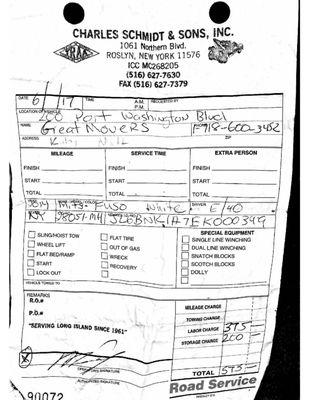 CHARLES SCHMIDT & SONS, INC.
1061 Northern Blvd.
ROSLYN, NEW YORK 11576
ICC MC268205
(516) 627-7630
FAX (516) 627-7379
DATE 6/1/17 TIME A.M. P.M. REQUESTED BY
LOCATION OF VEHICLE 200 Port Washington Blvd
NAME Great Movers F718-600-3452
ADDRESS ZIP
MILEAGE SERVICE TIME EXTRA PERSON
FINISH FINISH FINISH
START START START
TOTAL TOTAL TOTAL
Mits. Fuso White DRIVER E/40
NY 98051-MH
SPECIAL EQUIPMENT
SLING/HOIST TOW FLAT TIRE SINGLE LINE WINCHING
WHEEL LIFT OUT OF GAS DUAL LINE WINCHING
FLAT BED/RAMP WRECK SNATCH BLOCKS
START RECOVERY SCOTCH BLOCKS
LOCK OUT DOLLY
VEHICLE TOWED TO
REMARKS
R.O.#
P.O.#
"SERVING LONG ISLAND SINCE 1961"
MILEAGE CHARGE
TOWING CHARGE
LABOR CHARGE 395
STORAGE CHARGE 200
TOTAL 595
OPERATORS SIGNATURE
AUTHORIZED SIGNATURE
Road Service
90072